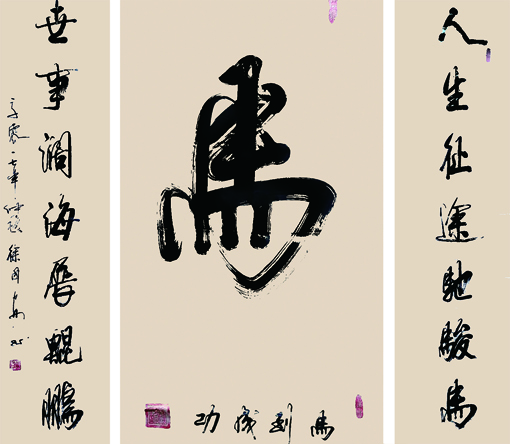 人生征途馳駿馬
馬
馬到成功
世事濶海展鯤鵬
一七年